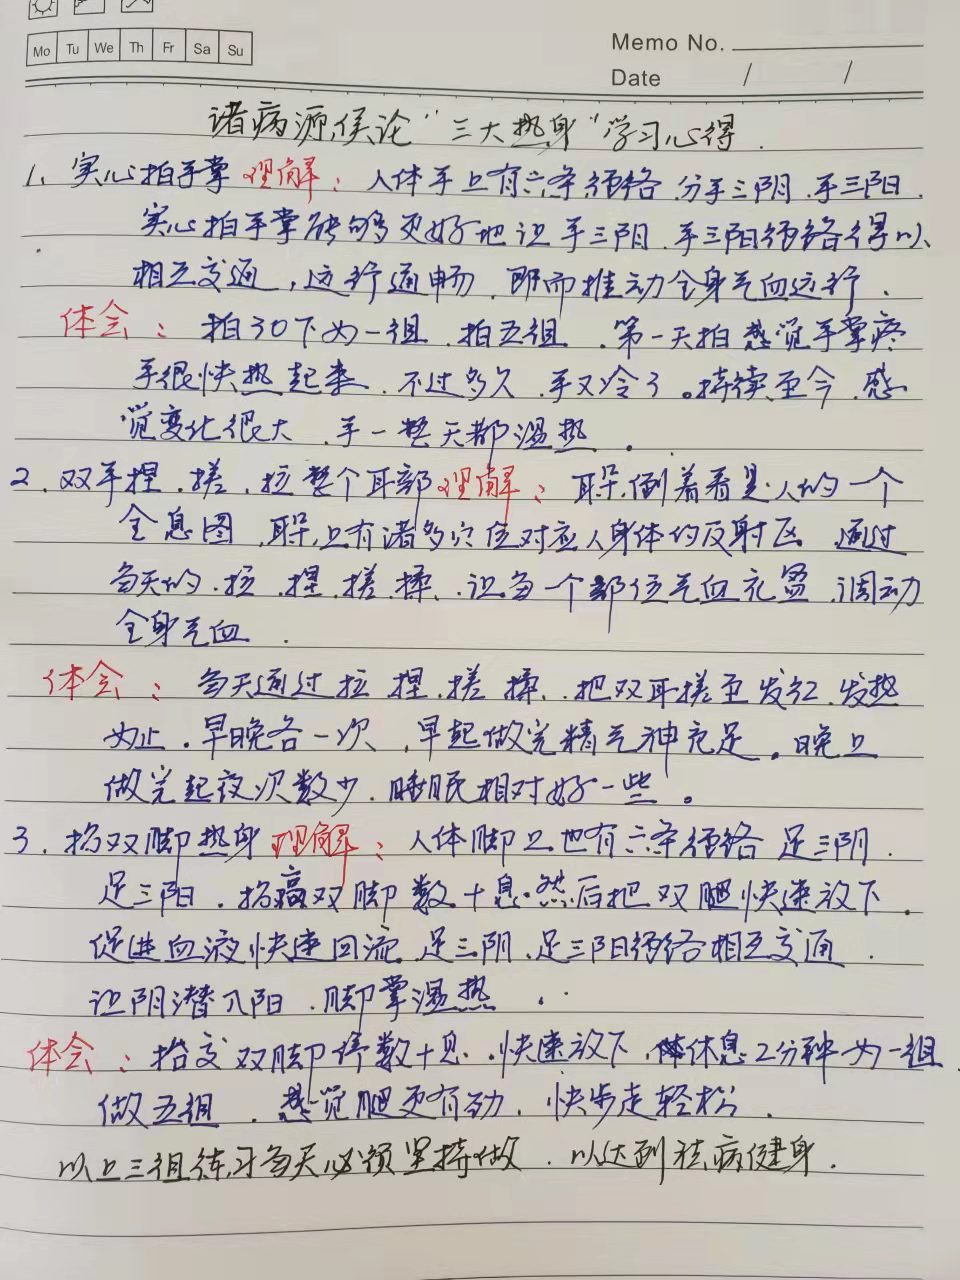 Mo Tu We Th Fr Sa Su
Memo No.
Date / /
诸病源侯论“三大热身”学习心得.
1、实心拍手掌 理解：人体手上有六条经络 分手三阴.手三阳.
实心拍手掌能够更好地让手三阴.手三阳经络得以、
相互交通,运行通畅.既而推动全身气血运行.
体会：拍30下为一组.拍五组.第一天拍感觉手掌疼
手很快热起来.不过多久.手又冷了。持续至今.感
觉变化很大.手一整天都温热.
2.双手捏.搓.拉整个耳部 理解：耳朵.倒着看是人的一个
全息图.耳朵上有诸多穴位对应人身体的反射区.通过
每天的.拉.捏.搓.揉.让每一个部位气血充盈.调动
全身气血.
体会：每天通过拉.捏.搓.揉.把双耳搓至发红.发热
为止.早晚各一次,早起做完精气神充足.晚上
做完起夜次数少.睡眠相对好一些。
3.抬双脚热身 理解：人体脚上也有六条经络 足三阴.
足三阳.抬高双脚数十息.然后把双腿快速放下.
促进血液快速回流.足三阴.足三阳经络相互交通.
让阴潜入阳.脚掌温热.
体会：抬双脚停数十息.快速放下.休息2分钟为一组
做五组.感觉腿更有劲.快步走轻松.
以上三组练习每天必须坚持做.以达到祛病健身.